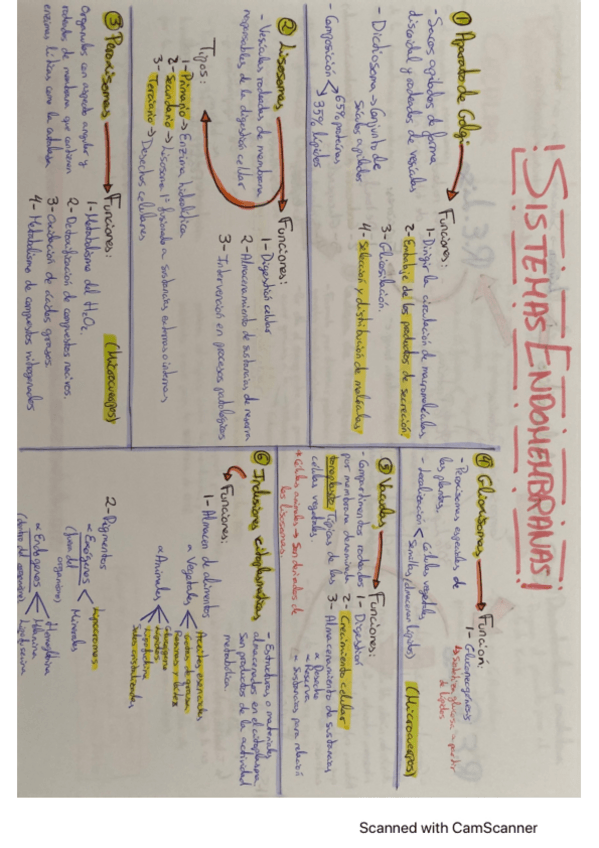 ¡SISTEMAS ENDOMEMBRANAS!
① Aparato de Golgi → Funciones:
- Sacos aplanados de forma
discoidal y rodeados de vesículas
- Dictiosoma → Conjunto de
sáculos aplanados
- Composición
65% proteínas
35% lípidos
1- Dirigir la circulación de macromoléculas
2- Embalaje de los productos de secreción
3- Glicosilación
4- Selección y distribución de moléculas
② Lisosomas → Funciones:
- Vesículas rodeadas de membrana
responsables de la digestión celular
1- Digestión celular
2- Almacenamiento de sustancias de reserva
3- Intervención en procesos patológicos
Tipos:
1- Primario → Enzima hidrolítica
2- Secundario → Lisosoma 1º fusionado a sustancias externas o internas
3- Terciario → Desechos celulares
③ Peroxisomas → Funciones: (Microcuerpos)
Orgánulos con aspecto angular y
rodeados de membrana que contienen
enzimas líticas como la catalasa
1- Metabolismo del H₂O₂
2- Detoxificación de compuestos nocivos
3- Oxidación de ácidos grasos
4- Metabolismo de compuestos nitrogenados
④ Glioxisomas → Función:
- Peroxisomas especiales de
las plantas.
- Localización
Células vegetales
Semillas (almacenar lípidos)
1- Gluconeogénesis
Sintetiza glucosa a partir
de lípidos
(Microcuerpos)
⑤ Vacuolas → Funciones:
- Compartimentos rodeados
por membrana denominada
tonoplasto. Típicas de las
células vegetales.
→ Células animales → Son derivados de
los lisosomas.
1- Digestión
2- Crecimiento celular
3- Almacenamiento de sustancias
Desecho
Reserva
- sustancias para
⑥ Inclusiones citoplasmáticas
- Estructuras o materiales
almacenados en el citoplasma.
Son productos de la actividad
metabólica
Funciones:
1- Almacén de alimentos
Vegetales
Aceites esenciales
Gotas de grasa
Animales
Glucógeno
Lípidos
2- Pigmentos
Exógenos
(fuera del
organismo)
Lipocromos
Minerales
Endógenos
(dentro del organismo)
Hemoglobina
Melanina
Lipofuscina
Scanned with CamScanner